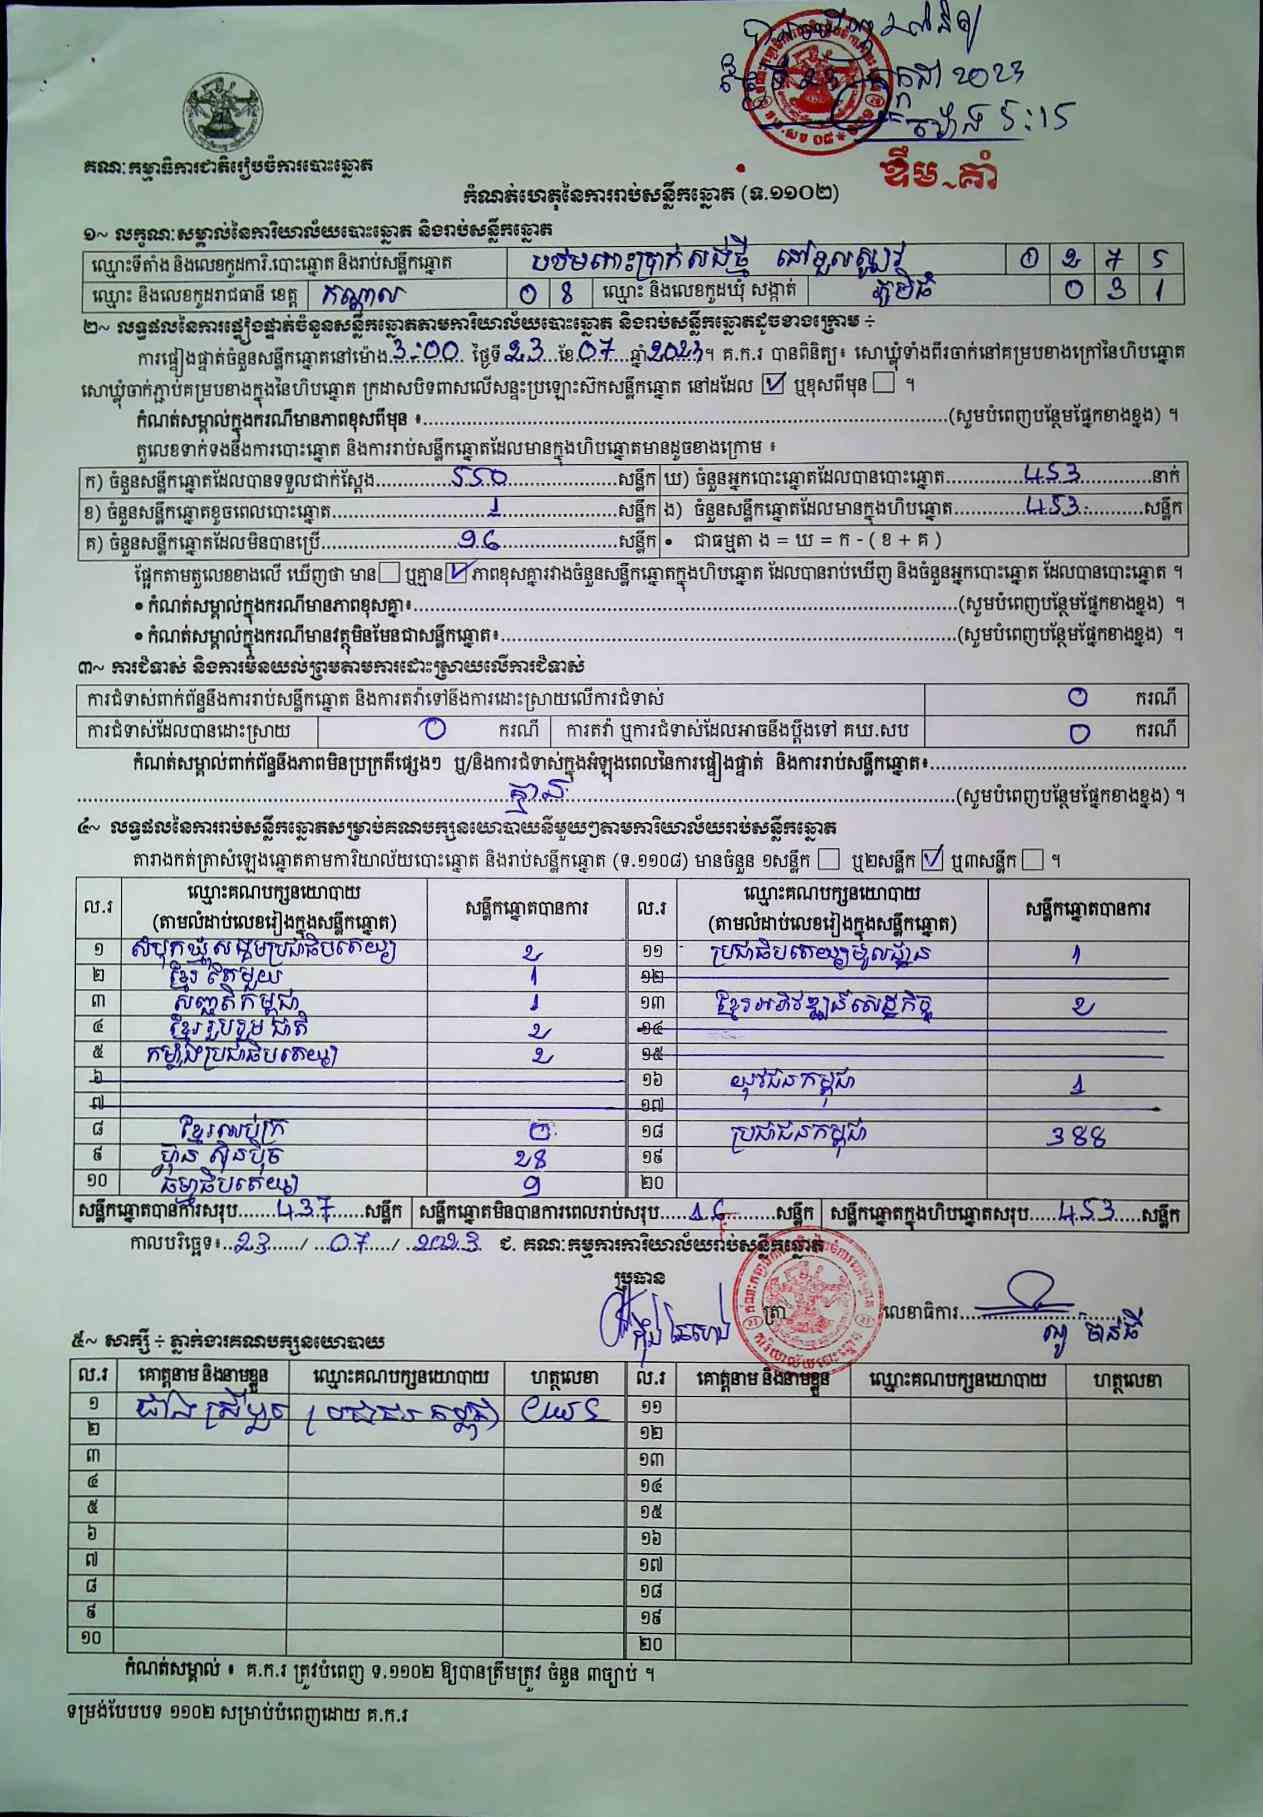 ថ្ងៃទី 23 កក្កដា 2023
ម៉ោង 5:15
ឌឹម គាំ
គណៈកម្មាធិការជាតិរៀបចំការបោះឆ្នោត
កំណត់ហេតុនៃការរាប់សន្លឹកឆ្នោត (ទ.១១០២)
១~ លក្ខណៈសម្គាល់នៃការិយាល័យបោះឆ្នោត និងរាប់សន្លឹកឆ្នោត
ឈ្មោះទីតាំង និងលេខកូដការិ.បោះឆ្នោត និងរាប់សន្លឹកឆ្នោត បឋមកោះប្រាក់សង់ថ្មី នៅទួលស្លូវ 0 2 7 5
ឈ្មោះ និងលេខកូដរាជធានី ខេត្ត កណ្តាល 0 8 ឈ្មោះ និងលេខកូដឃុំ សង្កាត់ ភូមិធំ 0 3 1
២~ លទ្ធផលនៃការផ្ទៀងផ្ទាត់ចំនួនសន្លឹកឆ្នោតតាមការិយាល័យបោះឆ្នោត និងរាប់សន្លឹកឆ្នោតដូចខាងក្រោម ÷
ការផ្ទៀងផ្ទាត់ចំនួនសន្លឹកឆ្នោតនៅម៉ោង 3:00 ថ្ងៃទី 23 ខែ 07 ឆ្នាំ 2023។ គ.ក.រ បានពិនិត្យ៖ សោឃ្លុំទាំងពីរចាក់នៅគម្របខាងក្រៅនៃហិបឆ្នោត
សោឃ្លុំចាក់ភ្ជាប់គម្របខាងក្នុងនៃហិបឆ្នោត ក្រដាសបិទពាសលើសន្ទះប្រឡោះស៊កសន្លឹកឆ្នោត នៅដដែល ☑ ឬខុសពីមុន ☐ ។
កំណត់សម្គាល់ក្នុងករណីមានភាពខុសពីមុន ៖..........(សូមបំពេញបន្ថែមផ្នែកខាងខ្នង) ។
តួលេខទាក់ទងនឹងការបោះឆ្នោត និងការរាប់សន្លឹកឆ្នោតដែលមានក្នុងហិបឆ្នោតមានដូចខាងក្រោម ៖
ក) ចំនួនសន្លឹកឆ្នោតដែលបានទទួលជាក់ស្តែង 550 សន្លឹក ឃ) ចំនួនអ្នកបោះឆ្នោតដែលបានបោះឆ្នោត 453 នាក់
ខ) ចំនួនសន្លឹកឆ្នោតខូចពេលបោះឆ្នោត 1 សន្លឹក ង) ចំនួនសន្លឹកឆ្នោតដែលមានក្នុងហិបឆ្នោត 453 សន្លឹក
គ) ចំនួនសន្លឹកឆ្នោតដែលមិនបានប្រើ 96 សន្លឹក • ជាធម្មតា ង = ឃ = ក - ( ខ + គ )
ផ្អែកតាមតួលេខខាងលើ ឃើញថា មាន ☐ ឬគ្មាន ☑ ភាពខុសគ្នារវាងចំនួនសន្លឹកឆ្នោតក្នុងហិបឆ្នោត ដែលបានរាប់ឃើញ និងចំនួនអ្នកបោះឆ្នោត ដែលបានបោះឆ្នោត ។
• កំណត់សម្គាល់ក្នុងករណីមានភាពខុសគ្នា៖..........(សូមបំពេញបន្ថែមផ្នែកខាងខ្នង) ។
• កំណត់សម្គាល់ក្នុងករណីមានវត្ថុមិនមែនជាសន្លឹកឆ្នោត៖..........(សូមបំពេញបន្ថែមផ្នែកខាងខ្នង) ។
៣~ ការជំទាស់ និងការមិនយល់ព្រមតាមការដោះស្រាយលើការជំទាស់
ការជំទាស់ពាក់ព័ន្ធនឹងការរាប់សន្លឹកឆ្នោត និងការតវ៉ាទៅនឹងការដោះស្រាយលើការជំទាស់ 0 ករណី
ការជំទាស់ដែលបានដោះស្រាយ 0 ករណី ការតវ៉ា ឬការជំទាស់ដែលអាចនឹងប្តឹងទៅ គឃ.សប 0 ករណី
កំណត់សម្គាល់ពាក់ព័ន្ធនឹងភាពមិនប្រក្រតីផ្សេងៗ ឬ/និងការជំទាស់ក្នុងអំឡុងពេលនៃការផ្ទៀងផ្ទាត់ និងការរាប់សន្លឹកឆ្នោត៖..........
គ្មាន (សូមបំពេញបន្ថែមផ្នែកខាងខ្នង) ។
៤~ លទ្ធផលនៃការរាប់សន្លឹកឆ្នោតសម្រាប់គណបក្សនយោបាយនីមួយៗតាមការិយាល័យរាប់សន្លឹកឆ្នោត
តារាងកត់ត្រាសំឡេងឆ្នោតតាមការិយាល័យបោះឆ្នោត និងរាប់សន្លឹកឆ្នោត (ទ.១១០៨) មានចំនួន ១សន្លឹក ☐ ឬ២សន្លឹក ☑ ឬ៣សន្លឹក ☐ ។
ល.រ ឈ្មោះគណបក្សនយោបាយ (តាមលំដាប់លេខរៀងក្នុងសន្លឹកឆ្នោត) សន្លឹកឆ្នោតបានការ ល.រ ឈ្មោះគណបក្សនយោបាយ (តាមលំដាប់លេខរៀងក្នុងសន្លឹកឆ្នោត) សន្លឹកឆ្នោតបានការ
១ សំបុកឃ្មុំសង្គមប្រជាធិបតេយ្យ 2 ១១ ប្រជាធិបតេយ្យមូលដ្ឋាន 1
២ ខ្មែរតែមួយ 1 ១២
៣ សញ្ជាតិកម្ពុជា 1 ១៣ ខ្មែរអភិវឌ្ឍន៍សេដ្ឋកិច្ច 2
៤ ខ្មែររួបរួមជាតិ 2 ១៤
៥ កម្លាំងប្រជាធិបតេយ្យ 2 ១៥
៦ ១៦ យុវជនកម្ពុជា 1
៧ ១៧
៨ ខ្មែរឈប់ក្រ ១៨ ប្រជាជនកម្ពុជា 388
៩ ហ៊្វុនស៊ិនប៉ិច 28 ១៩
១០ ធម្មាធិបតេយ្យ 9 ២០
សន្លឹកឆ្នោតបានការសរុប 437 សន្លឹក សន្លឹកឆ្នោតមិនបានការពេលរាប់សរុប 16 សន្លឹក សន្លឹកឆ្នោតក្នុងហិបឆ្នោតសរុប 453 សន្លឹក
កាលបរិច្ឆេទ៖ 23 / 07 / 2023 ជ. គណៈកម្មការការិយាល័យរាប់សន្លឹកឆ្នោត
ប្រធាន
ត្រា លេខាធិការ
៥~ សាក្សី ÷ ភ្នាក់ងារគណបក្សនយោបាយ
ល.រ គោត្តនាម និងនាមខ្លួន ឈ្មោះគណបក្សនយោបាយ ហត្ថលេខា ល.រ គោត្តនាម និងនាមខ្លួន ឈ្មោះគណបក្សនយោបាយ ហត្ថលេខា
១ ប្រជាជនកម្ពុជា ១១
២ ១២
៣ ១៣
៤ ១៤
៥ ១៥
៦ ១៦
៧ ១៧
៨ ១៨
៩ ១៩
១០ ២០
កំណត់សម្គាល់ ៖ គ.ក.រ ត្រូវបំពេញ ទ.១១០២ ឱ្យបានត្រឹមត្រូវ ចំនួន ៣ច្បាប់ ។
ទម្រង់បែបបទ ១១០២ សម្រាប់បំពេញដោយ គ.ក.រ